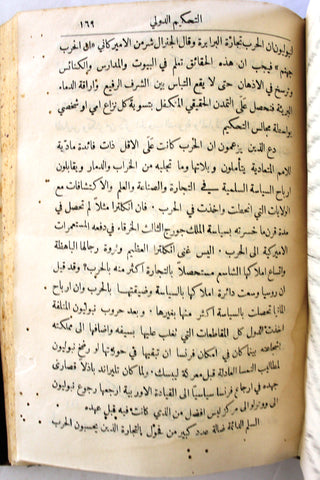 التحكيم الدولي ١٦٩
نبوليون ان الحرب تجارة البرابرة وقال الجنرال شرمن الاميركاني «ان الحرب
جهنم» فيجب ان هذه الحقائق تعلم في البيوت والمدارس والكنائس
وترسخ في الاذهان حتى لا يقع التباس بين الشرف الرفيع واراقة الدماء
البريئة فنحصل على التمدن الحقيقي المتكفل بتسوية كل نزاع امي او شخصي
بواسطة مجالس التحكيم
دع الذين يزعمون ان الحرب كانت على الاقل ذات فائدة مادية
للامم المتعادية يتأملون ويلاتها وما تجلبه من الخراب والدمار ويقابلون
ارباح السياسة السلمية في التجارة والصناعة والعلم والاكتشافات مع
الولايات التي انتحلت واخذت في الحرب. فان انكلترا مثلاً لم تحصل في
مدة قرن ما خسرته بسياسة الملك جورج الثالث الخرقاء في دفعه المستعمرات
الاميركية الى الحرب. اليس غنى انكلترا العظيم وثروة رجالها الباهظة
واتساع املاكها الشاسع مستحصلاً بالتجارة اكثر منه بالحرب؟ وقد قيل
ان روسيا وسعت دائرة املاكها بالسياسة وضيقتها بالحرب وان ارباح
المانيا تحصلت بالسياسة اكثر منها بغيرها. وبعد حروب نبوليون المتلفة
اخذت الدول كل المقاطعات التي تغلب عليها بسيفه واضافها الى مملكته
بشجاعته بينما كان في امكان فرنسا ان تبقيها في حوزتها لو رضخ نبوليون
لمطاليب النمسا العادلة قبل معركة ليبسك. ولما كان تليراند باذلاً قصارى
جهده في ارجاع فرنسا سياسيًا الى القيادة الاوربية ارجعها رجوع نبوليون
الى ووترلو الى مركز ليس افضل من الذي كانت فيه قبل عهده
السلم الدائمة ضالة عدد كبير من فحول التجارة الذين يحسبون الحرب